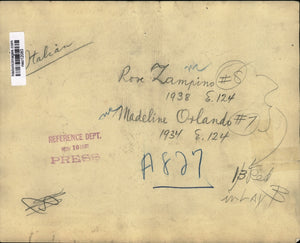 Italian
Rose Zampino #8
1938 E.124
Madeline Orlando #7
1934 E.124
REFERENCE DEPT.
PRESS
A827